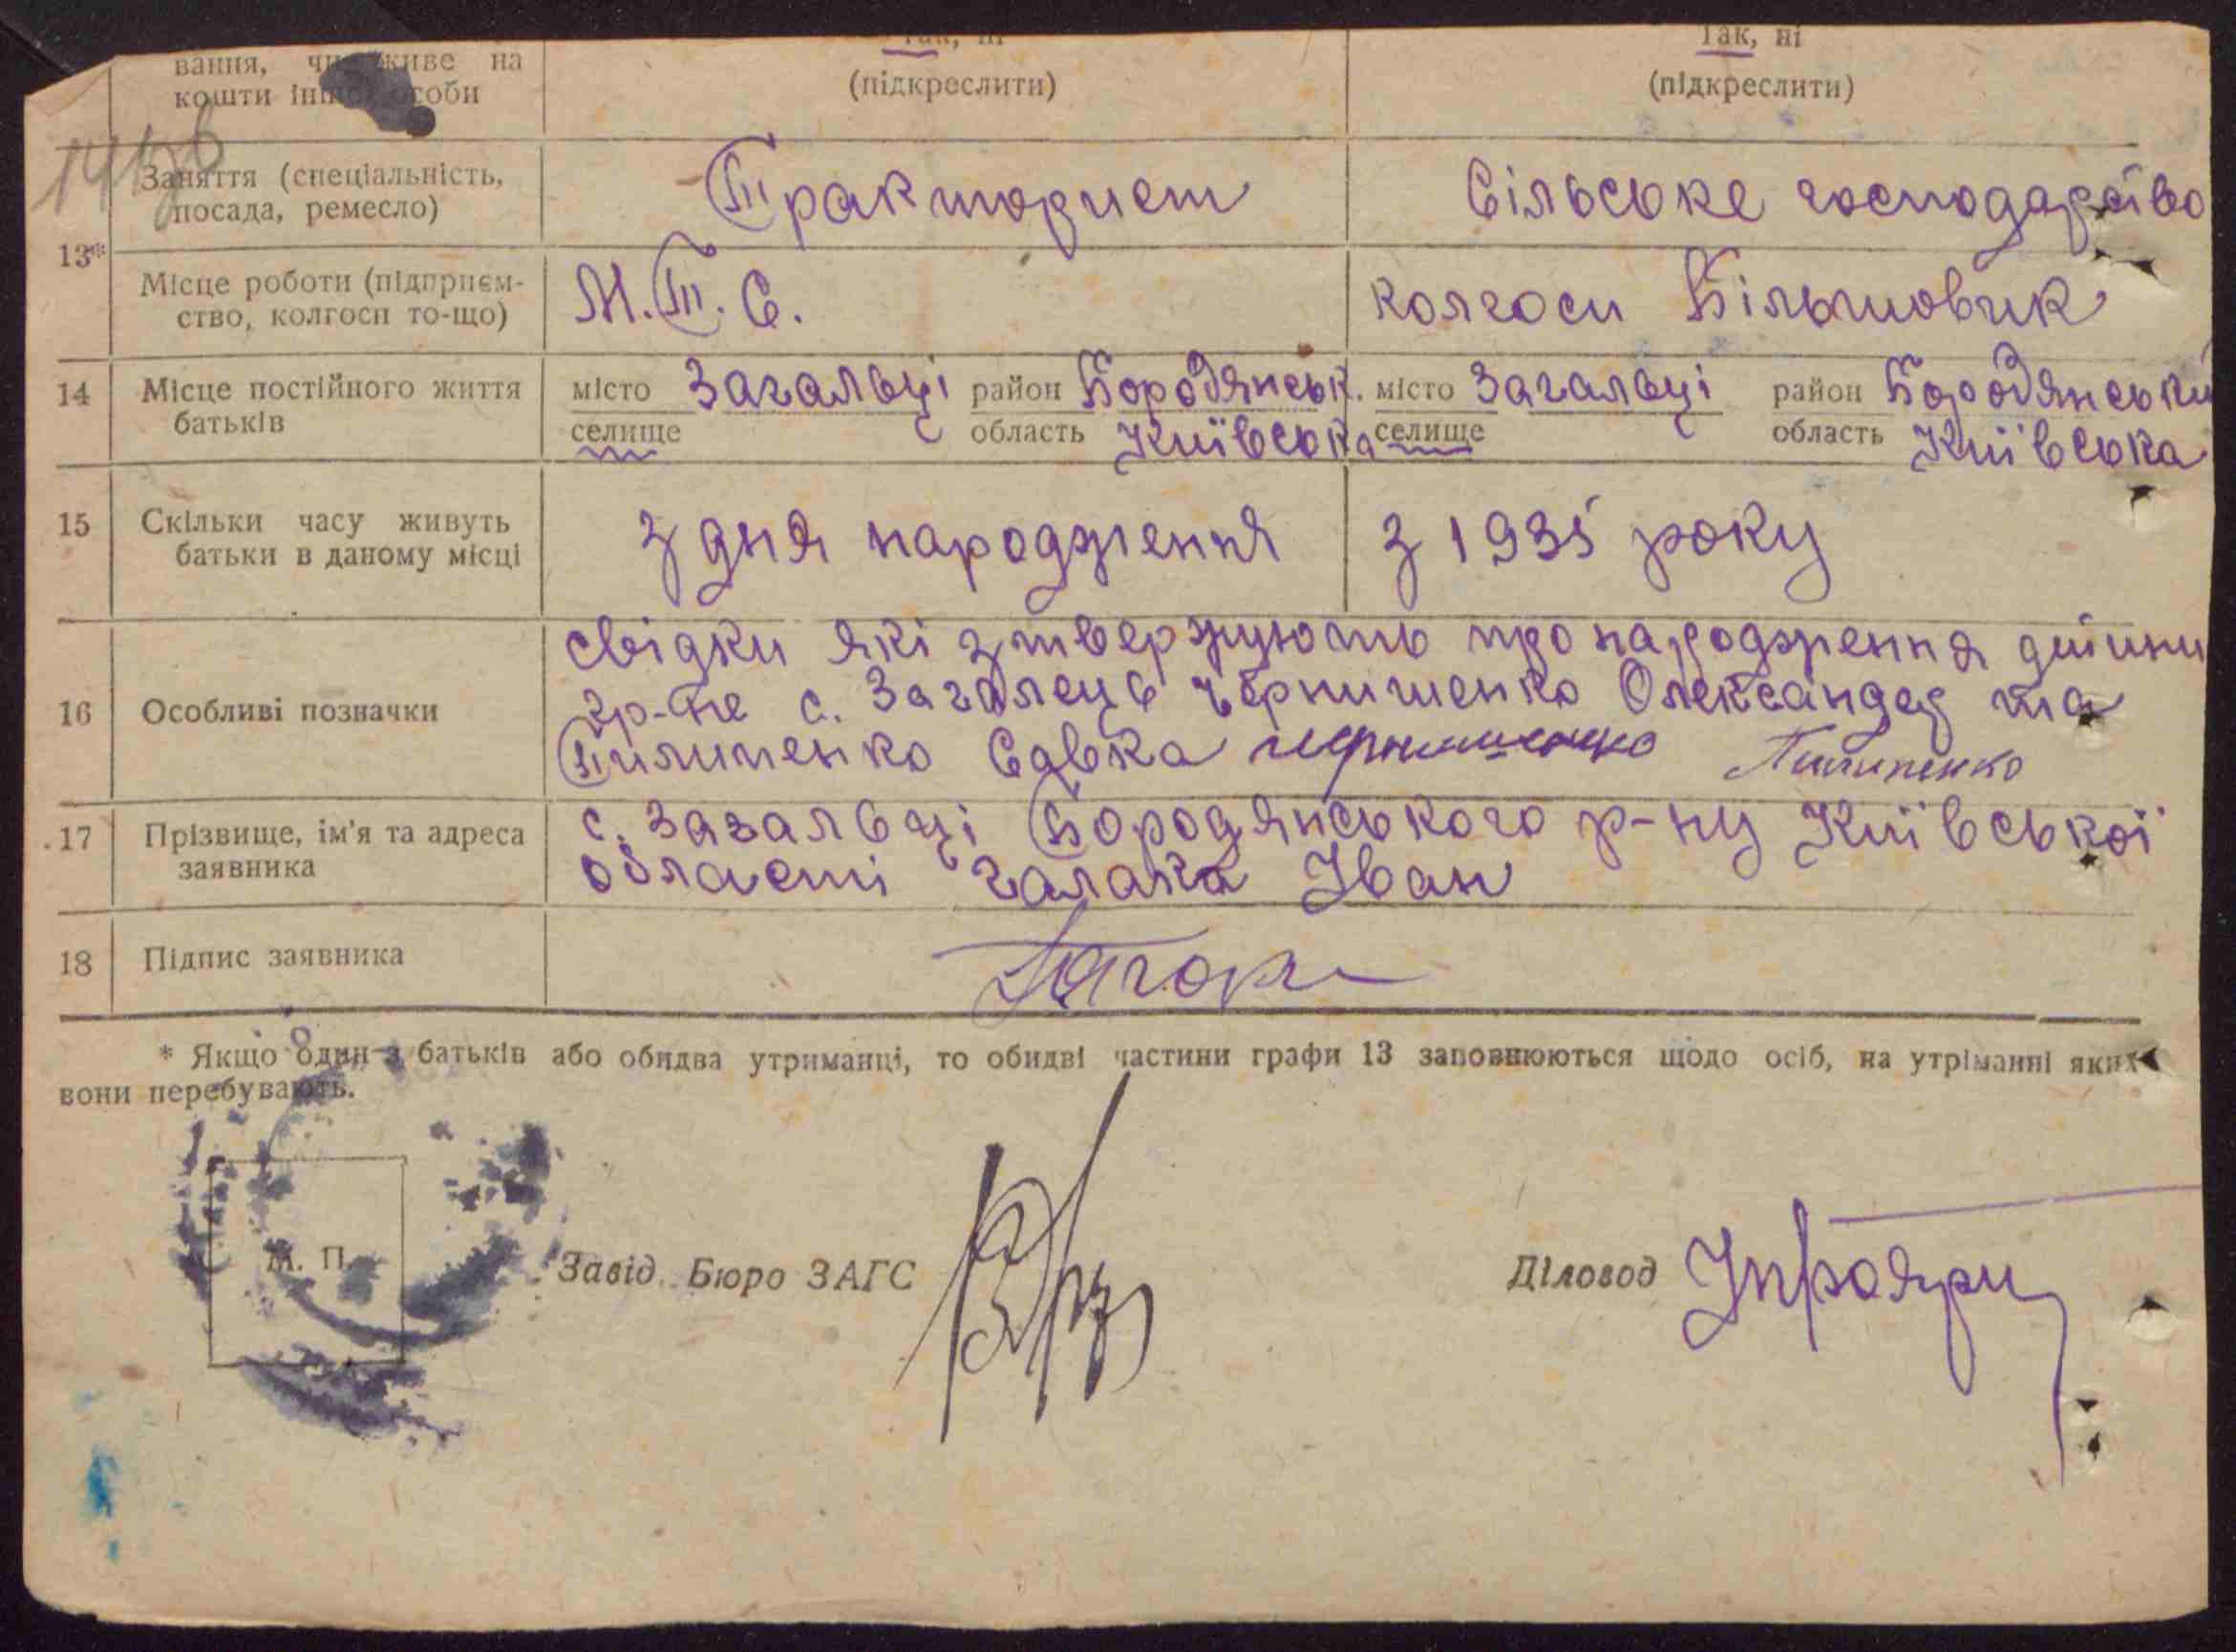 вання, чи живе на
кошти іншої особи
Так, ні
(підкреслити)
Так, ні
(підкреслити)
13*
Заняття (спеціальність,
посада, ремесло)
Тракторист
Сільське господарство
Місце роботи (підприєм-
ство, колгосп то-що)
М.Т.С.
колгосп Більшовик
14
Місце постійного життя
батьків
місто Загальці район Бородянськ.
селище область Київська
місто Загальці район Бородянський
селище область Київська
15
Скільки часу живуть
батьки в даному місці
з дня народження
з 1935 року
16
Особливі позначки
свідки які зтвержують про народження дитини
гр-не с. Загалець Чернишенко Олександр та
Пилипенко Савка Чернишенко Пилипенко
17
Прізвище, ім'я та адреса
заявника
с. Загальці Бородянського р-ну Київської
області Галака Іван
18
Підпис заявника
* Якщо один з батьків або обидва утриманці, то обидві частини графи 13 заповнюються щодо осіб, на утріманні яких
вони перебувають.
М. П.
Завід. Бюро ЗАГС
Діловод